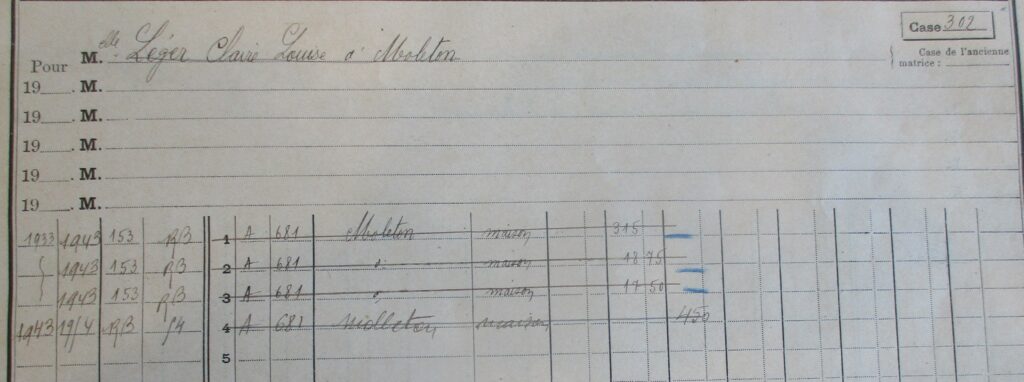 Case 302
Case de l'ancienne
matrice :
Pour M.elle Léger Claire Louise à Moleton
19 . M.
19 . M.
19 . M.
19 . M.
19 . M.
1933 1943 153 RB 1 A 681 Moleton maison 315
1943 153 RB 2 A 681 d° maison 18 75
1943 153 RB 3 A 681 maison 17 50
1943 RB 4 A 681 maison 450
5